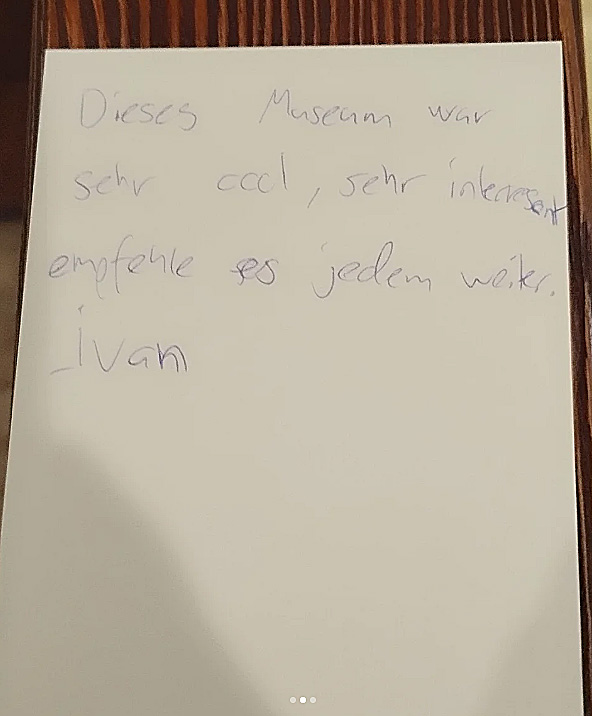 Dieses Museum war
sehr cool, sehr interessant
empfehle es jedem weiter.
Ivan